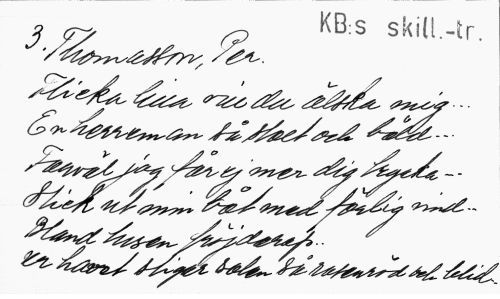 KB:s skill.-tr.
3. Thomasson, Per.
Flicka lilla vill du älska mig...
En herreman så stolt och båld...
Farväl jag får ej mer dig trycka...
Stick ut min båt med förlig vind..
Bland tusen fröjderop..
Ur havet stiger solen så rosenröd och blid..